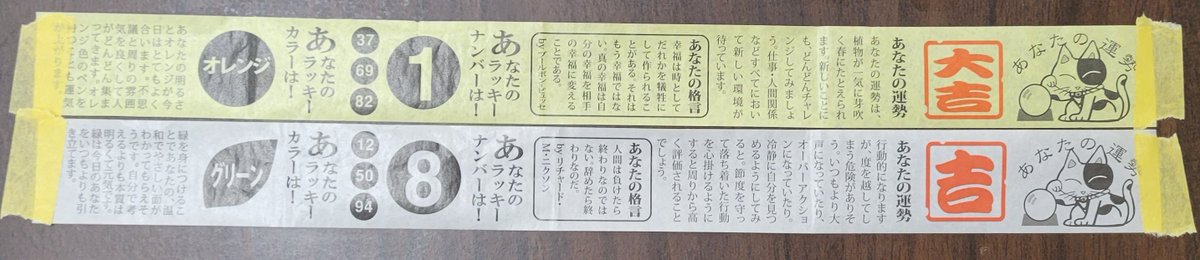 あなたの運勢
大吉
あなたの運勢
あなたの運勢は、
植物が一気に芽吹
く春にたとえられ
ます。新しいことに
もどんどんチャレ
ンジしてみましょ
う。仕事・人間関係
などすべてにおい
て新しい環境が
待っています。
あなたの格言
幸福は時として
だれかを犠牲に
して作られるこ
とがある。それは
もう幸福ではな
い。真の幸福は自
分の幸福を相手
の幸福に変える
ことである。
あなたの
ラッキー
ナンバーは!
1
37
69
82
あなたの
ラッキー
カラーは!
オレンジ
あなたの明るさ
とオレンジが今
日はとてもよく
合います。不思
議と周りの雰囲
気を良くして人
がどんどん集ま
ってきます。オレ
ンジ色のペンを
持つととても運気
が上がります。
あなたの運勢
吉
あなたの運勢
行動的になります
が、度を越してし
まう危険がありそ
う。いつもより大
声になっていたり、
オーバーアクショ
ンになっていたり。
冷静に自分を見つ
めるようにしてみ
ると。節度を守っ
て落ち着いた行動
を心掛けるように
すると周りから高
く評価されること
でしょう。
あなたの格言
人間は負けたら
終わりなのでは
ない。辞めたら終
わりなのだ。
by リチャード・
M・ニクソン
あなたの
ラッキー
ナンバーは!
8
12
50
94
あなたの
ラッキー
カラーは!
グリーン
緑を身につけるこ
とであなたの、温
和でやさしい面が
わかってもらえそ
うです。自分で考
えるよりも本質は
明るくて元気です。
緑は今日のあなた
をいつもよりも引
き立てます。